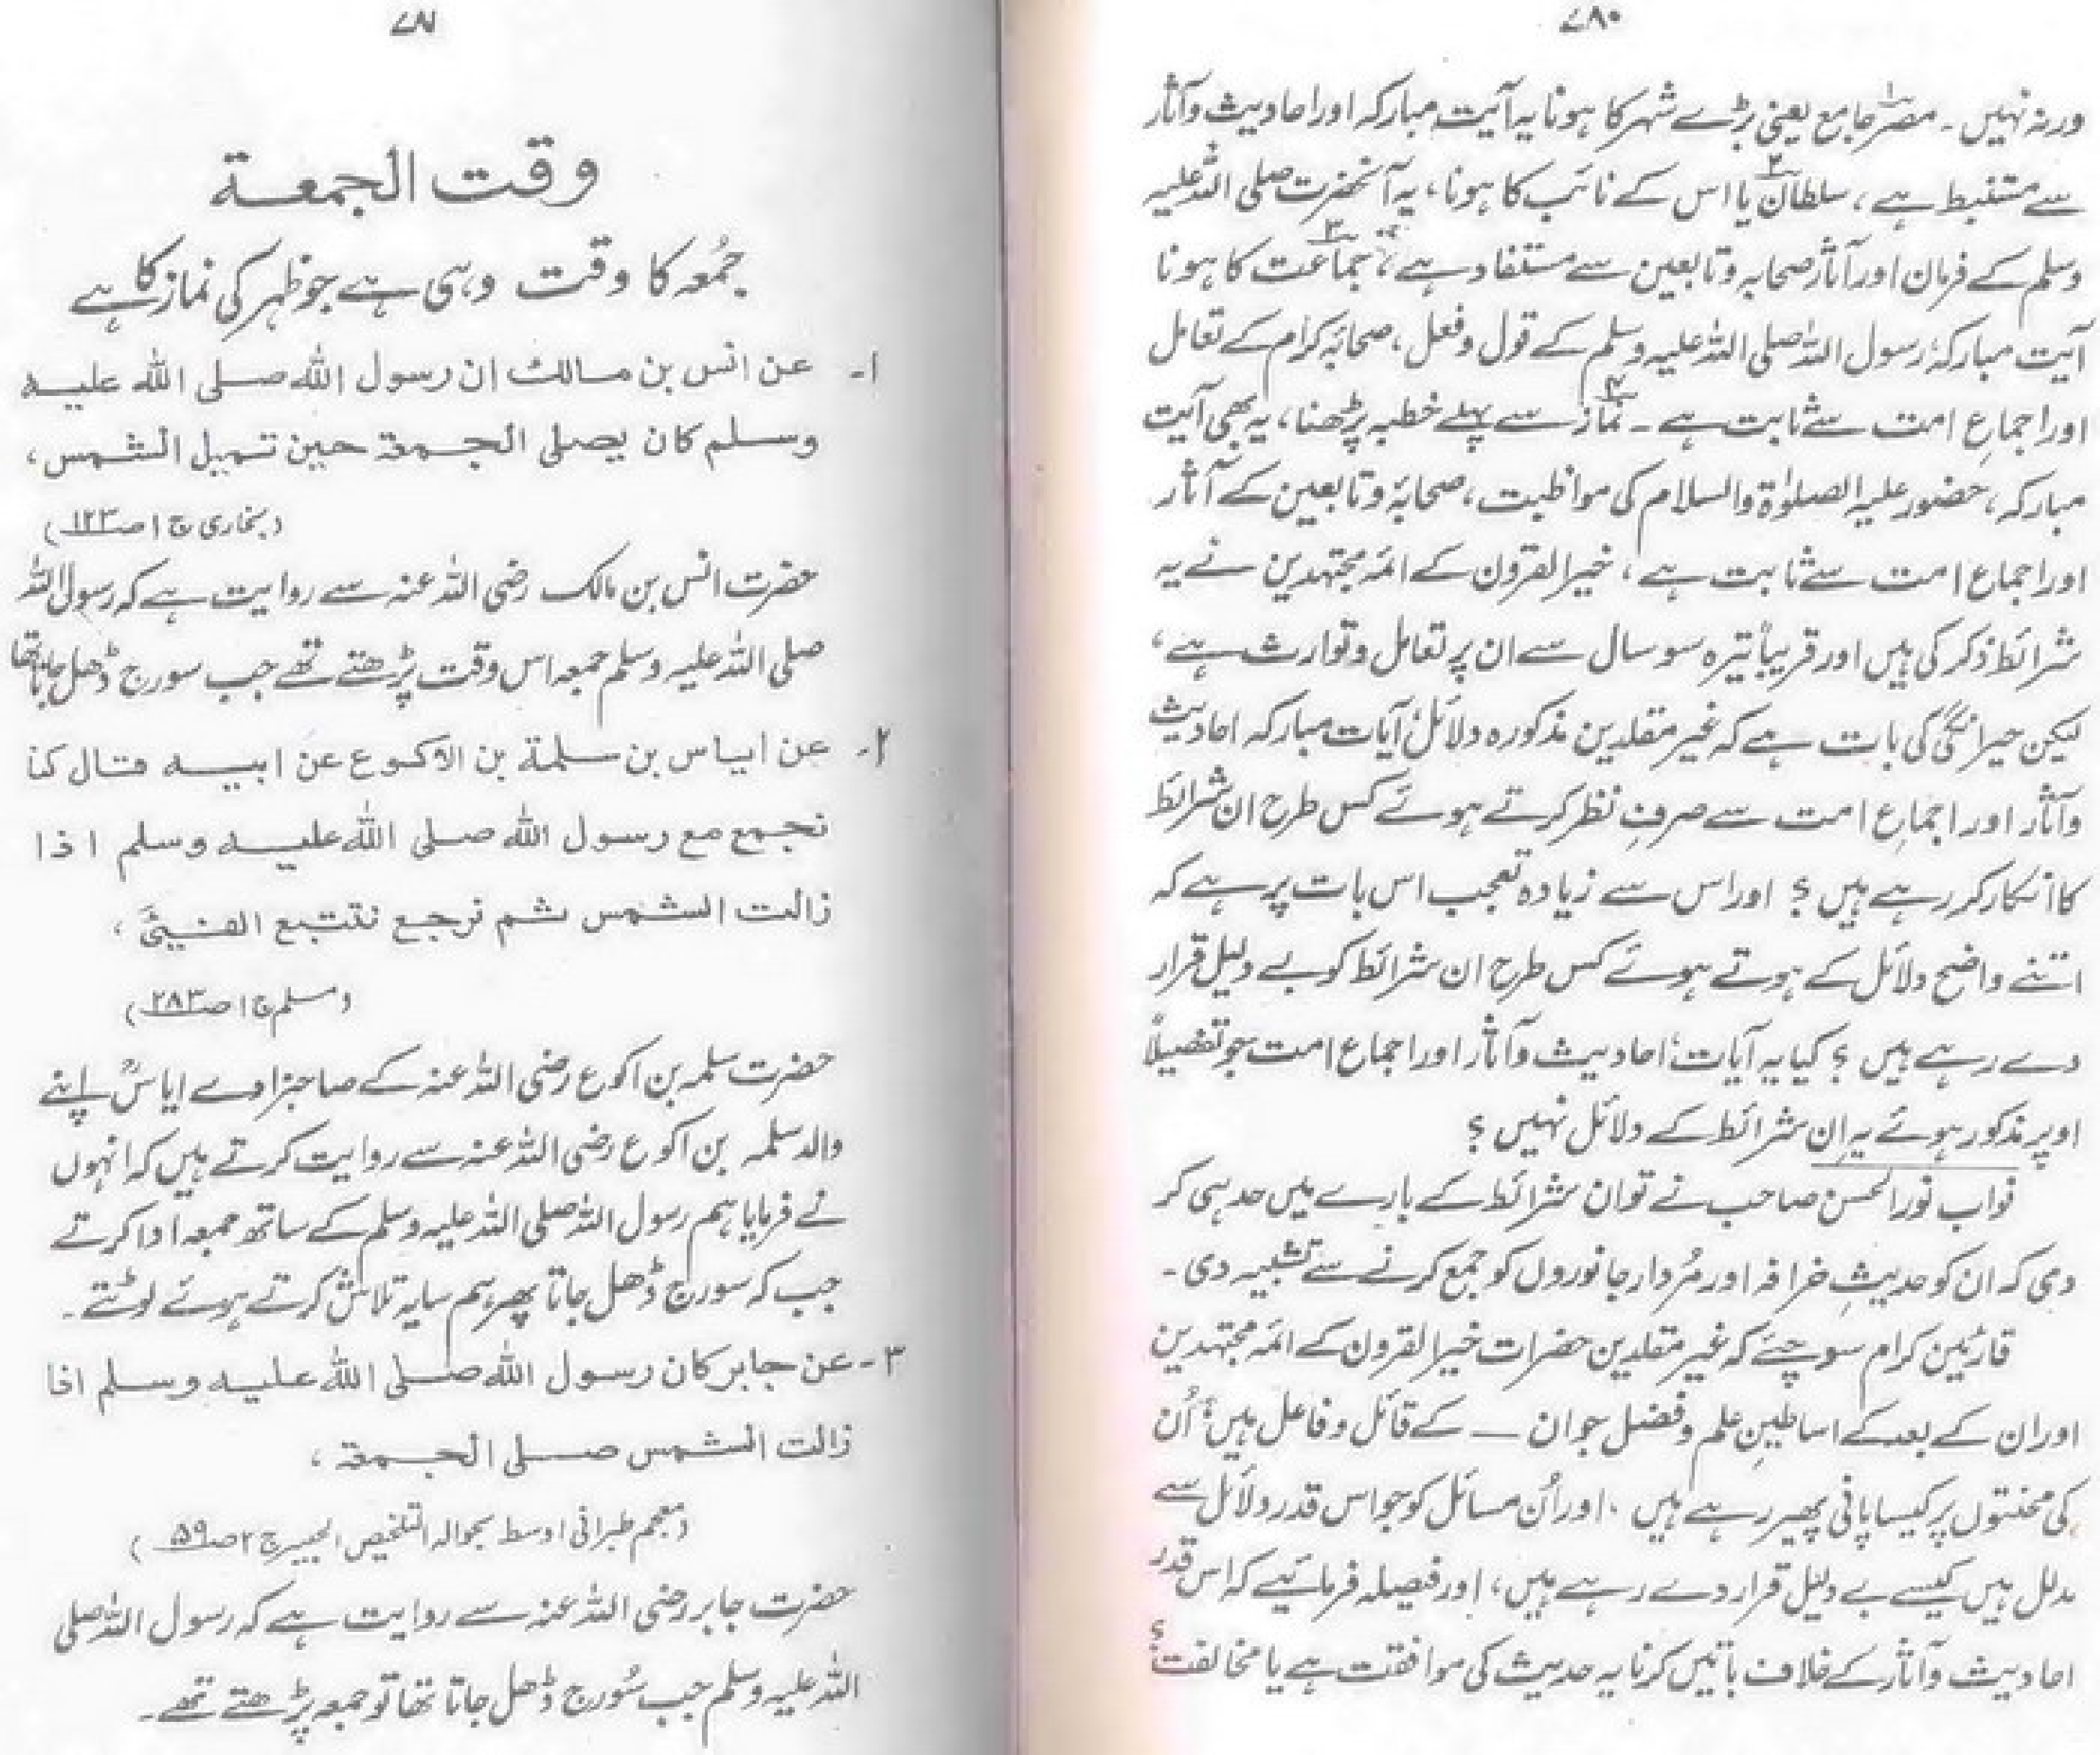 ۷۸۰
ورنہ نہیں۔ مصر جامع یعنی بڑے شہر کا ہونا یہ آیت مبارکہ اور احادیث و آثار
سے مستنبط ہے، سلطان یا اس کے نائب کا ہونا، یہ آنحضرت صلی اللہ علیہ
وسلم کے فرمان اور آثار صحابہ و تابعین سے مستفاد ہے، جماعت کا ہونا
آیت مبارکہ، رسول اللہ صلی اللہ علیہ وسلم کے قول و فعل، صحابہ کرام کے تعامل
اور اجماعِ امت سے ثابت ہے۔ نماز سے پہلے خطبہ پڑھنا، یہ بھی آیت
مبارکہ، حضور علیہ الصلوٰۃ والسلام کی مواظبت، صحابہ و تابعین کے آثار
اور اجماع امت سے ثابت ہے، خیر القرون کے ائمہ مجتہدین نے یہ
شرائط ذکر کی ہیں اور قریباً تیرہ سو سال سے ان پر تعامل و توارث ہے،
لیکن حیرانگی کی بات ہے کہ غیر مقلدین مذکورہ دلائل، آیات مبارکہ احادیث
و آثار اور اجماعِ امت سے صرفِ نظر کرتے ہوئے کس طرح ان شرائط
کا انکار کر رہے ہیں ؟ اور اس سے زیادہ تعجب اس بات پر ہے کہ
اتنے واضح دلائل کے ہوتے ہوئے کس طرح ان شرائط کو بے دلیل قرار
دے رہے ہیں ؟ کیا یہ آیات، احادیث و آثار اور اجماع امت جو تفصیلاً
اوپر مذکور ہوئے یہ ان شرائط کے دلائل نہیں ؟
نواب نور الحسن صاحب نے تو ان شرائط کے بارے میں حد ہی کر
دی کہ ان کو حدیثِ خرافہ اور مُردار جانوروں کو جمع کرنے سے تشبیہ دی۔
قارئین کرام سوچئے کہ غیر مقلدین حضرات خیر القرون کے ائمہ مجتہدین
اور ان کے بعد کے اساطینِ علم و فضل جو ان ــ کے قائل و فاعل ہیں، اُن
کی محنتوں پر کیسا پانی پھیر رہے ہیں ۔ اور اُن مسائل کو جو اس قدر دلائل سے
مدلل ہیں کیسے بے دلیل قرار دے رہے ہیں، اور فیصلہ فرمائیے کہ اس قدر
احادیث و آثار کے خلاف باتیں کرنا یہ حدیث کی موافقت ہے یا مخالفت؟
۷۸۱
وقت الجمعة
جمُعہ کا وقت وہی ہے جو ظہر کی نماز کا ہے
۱۔ عن انس بن مالك ان رسول الله صلى الله عليه
وسلم كان يصلى الجمعة حين تميل الشمس،
(بخاری ج ۱ ص ۱۲۳)
حضرت انس بن مالک رضی اللہ عنہ سے روایت ہے کہ رسول اللہ
صلی اللہ علیہ وسلم جمعہ اس وقت پڑھتے تھے جب سورج ڈھل جاتا تھا
۲۔ عن اياس بن سلمة بن الاكوع عن ابيه قال كنا
نجمع مع رسول الله صلى الله عليه وسلم اذا
زالت الشمس ثم نرجع نتتبع الفيئَ،
(مسلم ج ۱ ص ۲۸۳)
حضرت سلمہ بن اکوع رضی اللہ عنہ کے صاحبزادے ایاسؒ اپنے
والد سلمہ بن اکوع رضی اللہ عنہ سے روایت کرتے ہیں کہ انہوں
نے فرمایا ہم رسول اللہ صلی اللہ علیہ وسلم کے ساتھ جمعہ ادا کرتے
جب کہ سورج ڈھل جاتا پھر ہم سایہ تلاش کرتے ہوئے لوٹتے۔
۳۔ عن جابر كان رسول الله صلى الله عليه وسلم اذا
زالت الشمس صلى الجمعة،
(معجم طبرانی اوسط بحوالہ التلخیص الحبیر ج ۲ ص ۵۹)
حضرت جابر رضی اللہ عنہ سے روایت ہے کہ رسول اللہ صلی
اللہ علیہ وسلم جب سُورج ڈھل جاتا تھا تو جمعہ پڑھتے تھے۔